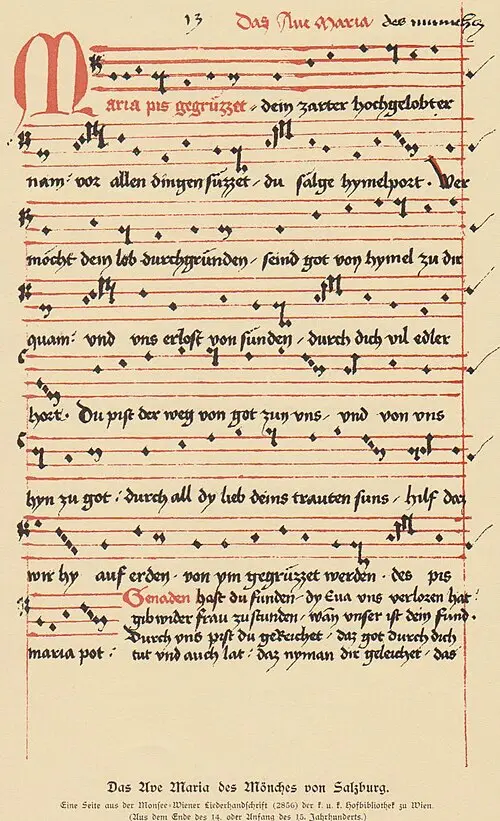 13 Das Ave Maria des munchs
Maria pis gegrüzzet · dein zarter hochgelobter
nam: vor allen dingen süzzet · du sälge hymelport · Wer
möcht dein lob durchgründen · seind got von hymel zu dir
quam: vnd vns erlost von sünden · durch dich vil edler
hort · Du pist der weg von got zun vns · vnd von vns
hyn zu got: durch all dy lieb deins trauten suns · hilf daz
wir hy auf erden · von ym gegrüzzet werden · des pis
Genaden hast du funden · dy Eua vns verlozen hat:
gib wider frau zu stunden · wan vnser ist dein fund.
Durch vns pist du geleichet · daz got durch dich
maria pot: tut vnd auch lat: daz nyman dir geleichet · das
Das Ave Maria des Mönches von Salzburg.
Eine Seite aus der Monsee-Wiener Liederhandschrift (2856) der k. u. k. Hofbibliothek zu Wien.
(Aus dem Ende des 14. oder Anfang des 15. Jahrhunderts.)